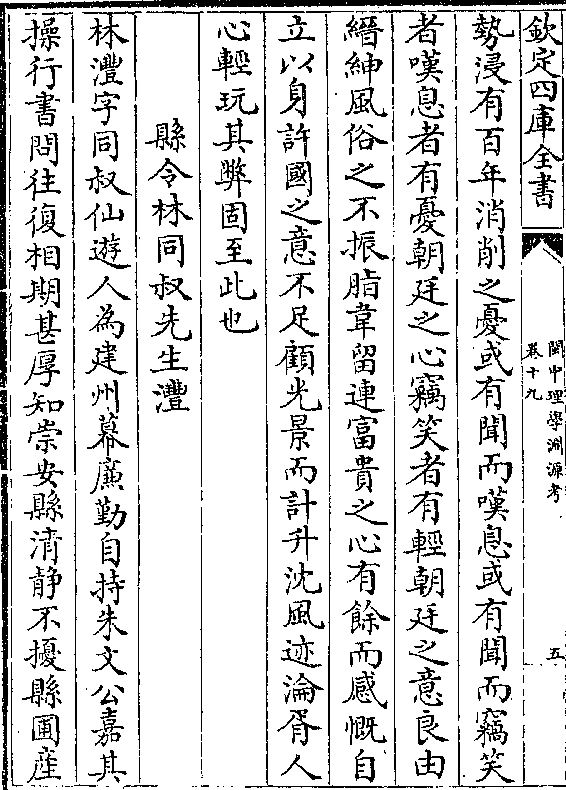 欽定四庫全書
閩中理學淵源考
卷十九
五
勢浸有百年消削之憂或有聞而嘆息或有聞而竊笑
者嘆息者有憂朝廷之心竊笑者有輕朝廷之意良由
縉紳風俗之不振脂韋留連富貴之心有餘而感慨自
立以身許國之意不足顧光景而計升沈風迹淪胥人
心輕玩其弊固至此也
縣令林同叔先生灃
林灃字同叔仙遊人為建州幕廉勤自持朱文公嘉其
操行書問往復相期甚厚知崇安縣清靜不擾縣圃産